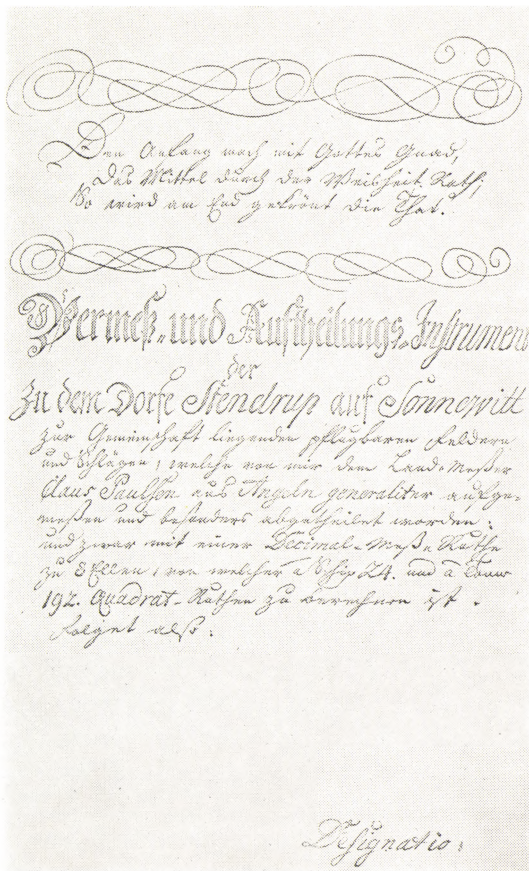 Den Anfang mach mit Gottes Gnad,
Das Mittel durch der Weisheit Rath,
So wird am End gekrönt die That.
Vermeß- und Austheilungs-Instrument
der
Zu dem Dorfe Stendrup auf Sonnewitt
zur Gemeinschaft liegenden pflugbaren Feldern
und Schlägen, welche von mir dem Land-Meßer
Claus Paulsen aus Angeln generaliter aufge-
meßen und besonders abgetheilet worden:
und zwar mit einer Decimal-Meß-Ruthe
zu 8 Ellen, von welcher a Schip 24. und a Tonn
192. Quadrat-Ruthen zu berechnen ist.
folget also:
Designatio: